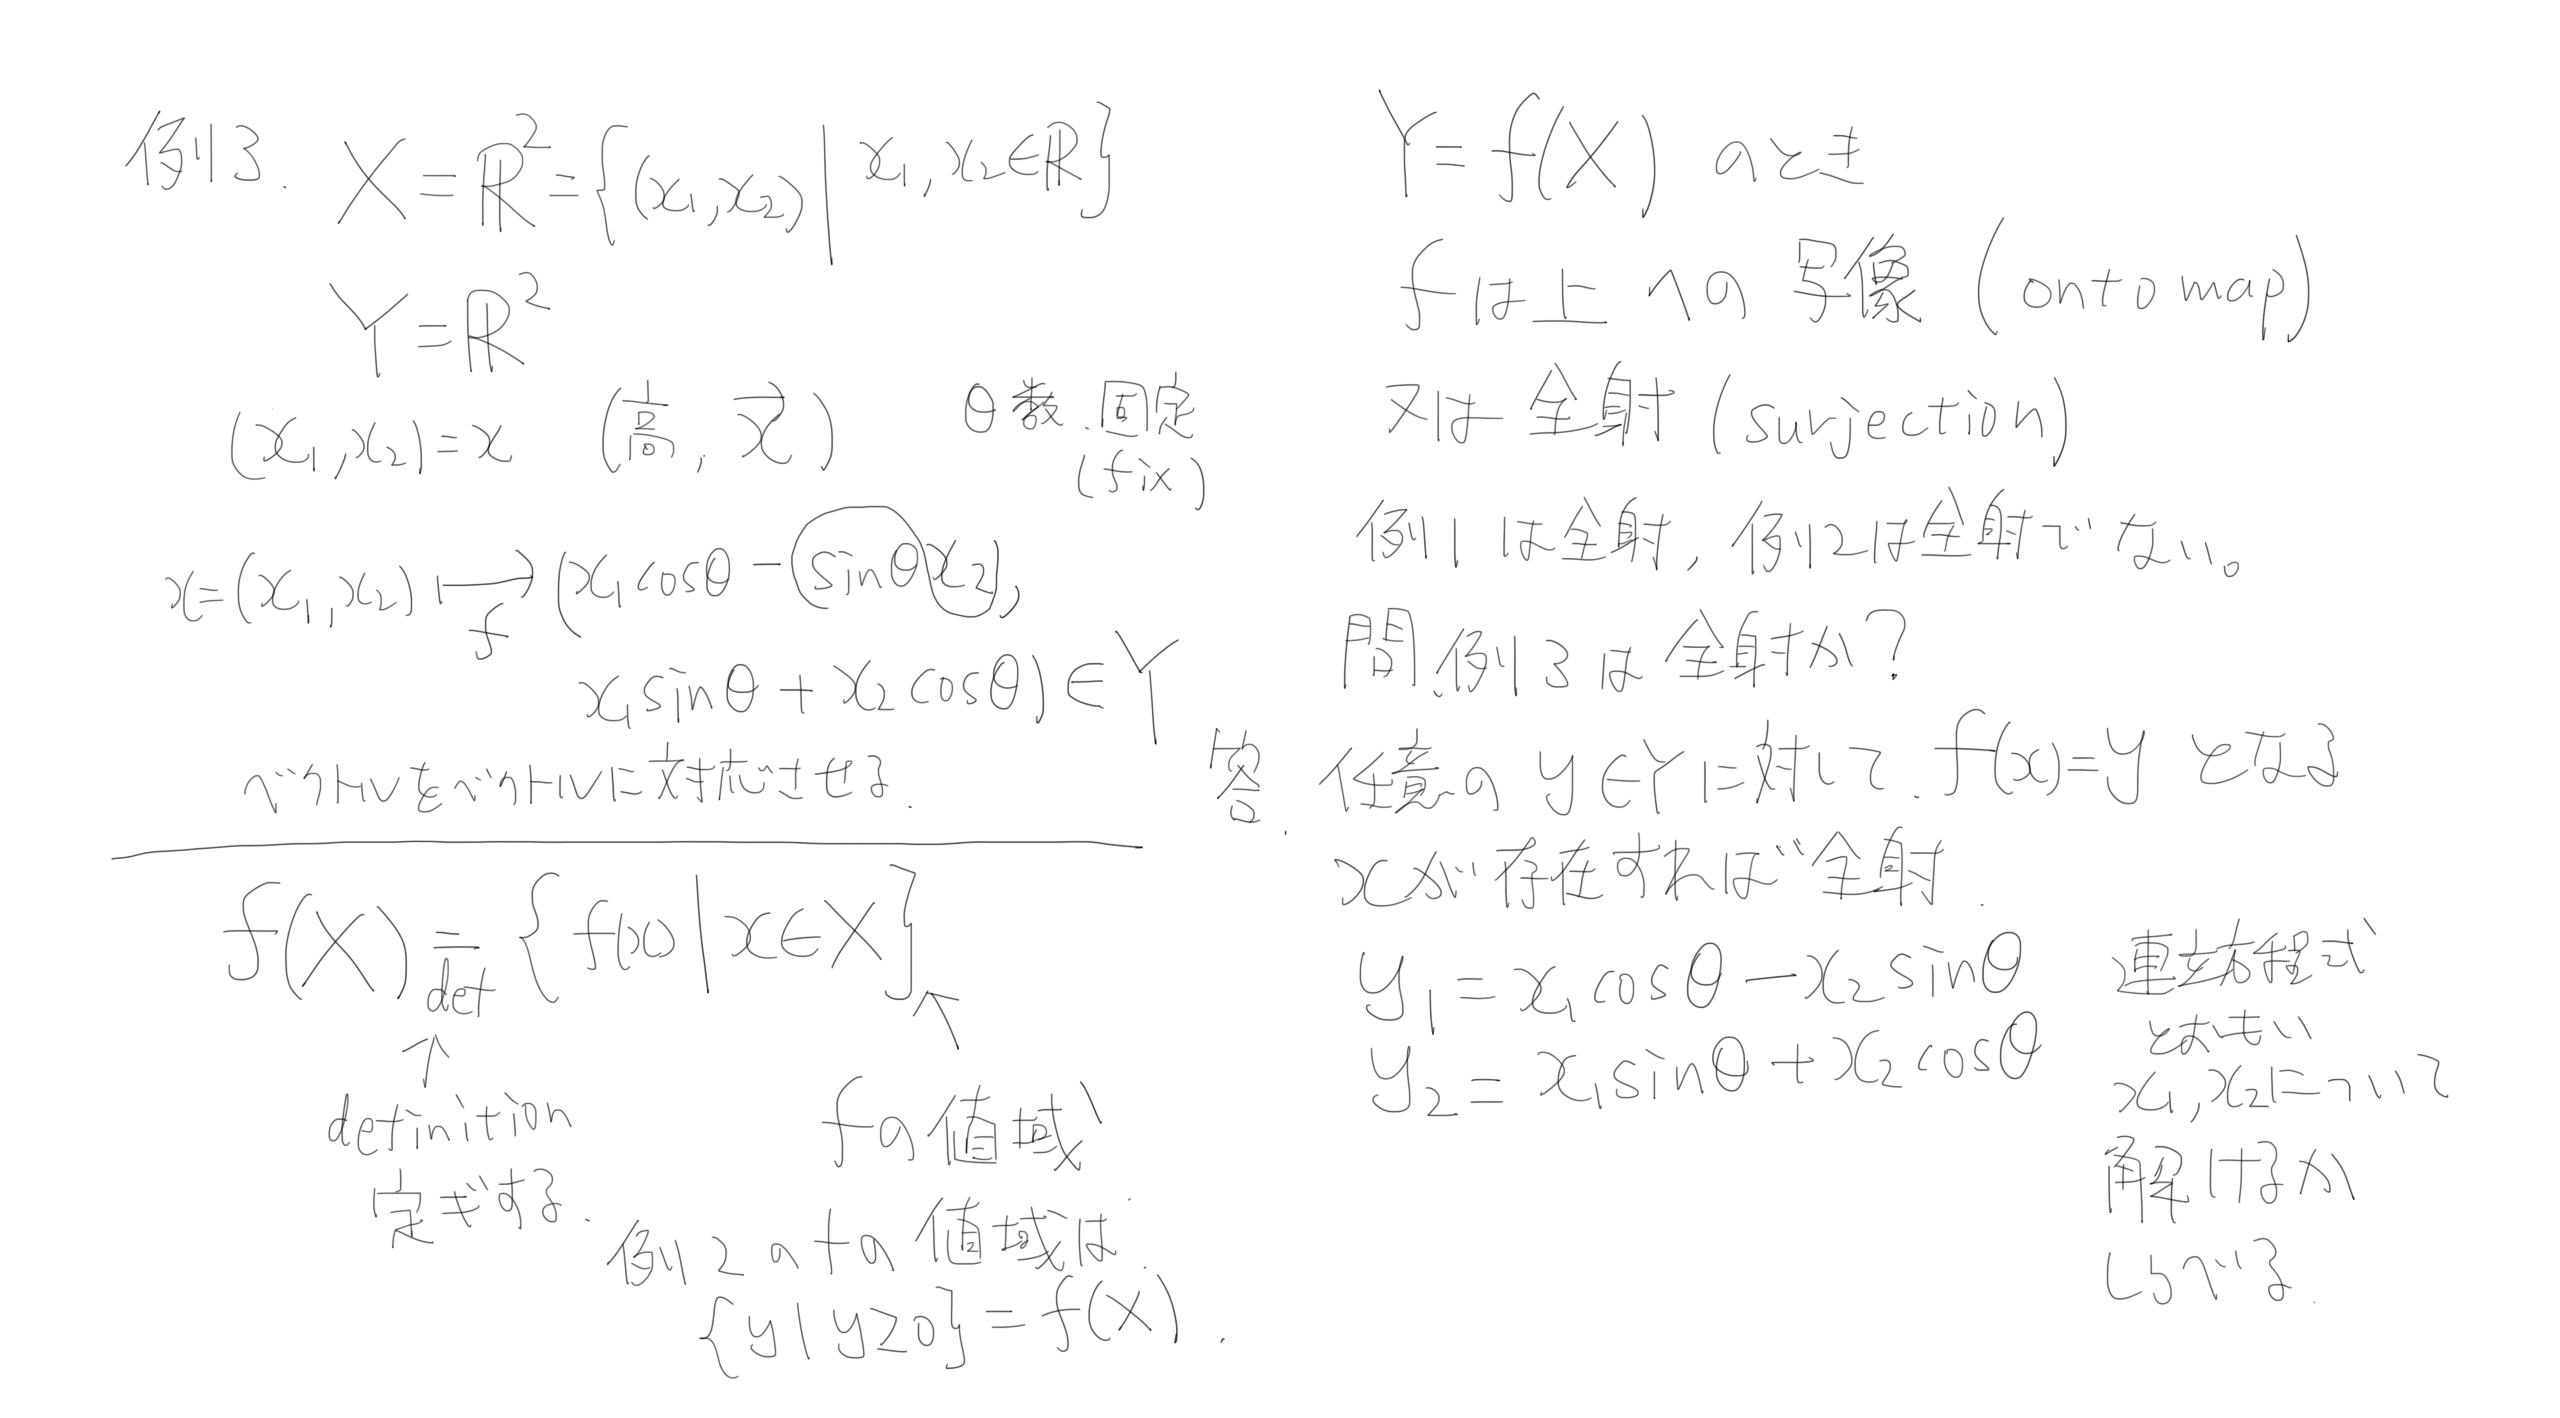 例3. X = ℝ² = {(x₁, x₂) | x₁, x₂ ∈ ℝ}
Y = ℝ²
(x₁, x₂) = x (高, x⃗) θ 数. 固定
(fix)
x = (x₁, x₂) ⟼ (x₁cosθ − sinθ x₂),
f
x₁sinθ + x₂cosθ) ∈ Y
ベクトルをベクトルに対応させる.
f(X) = {f(x) | x ∈ X}
def
↑
definition
定ギする.
↖
fの値域
例2のfの値域は
{y | y ≥ 0} = f(X).
Y = f(X) のとき
fは上への写像 (onto map)
又は全射 (surjection)
例1は全射, 例2は全射でない。
問.例3は全射か?
答. 任意の y ∈ Y に対して. f(x) = y となる
xが存在すれば全射.
y₁ = x₁cosθ − x₂sinθ
y₂ = x₁sinθ + x₂cosθ
連立方程式
とおもい
x₁, x₂について
解けるか
しらべる.